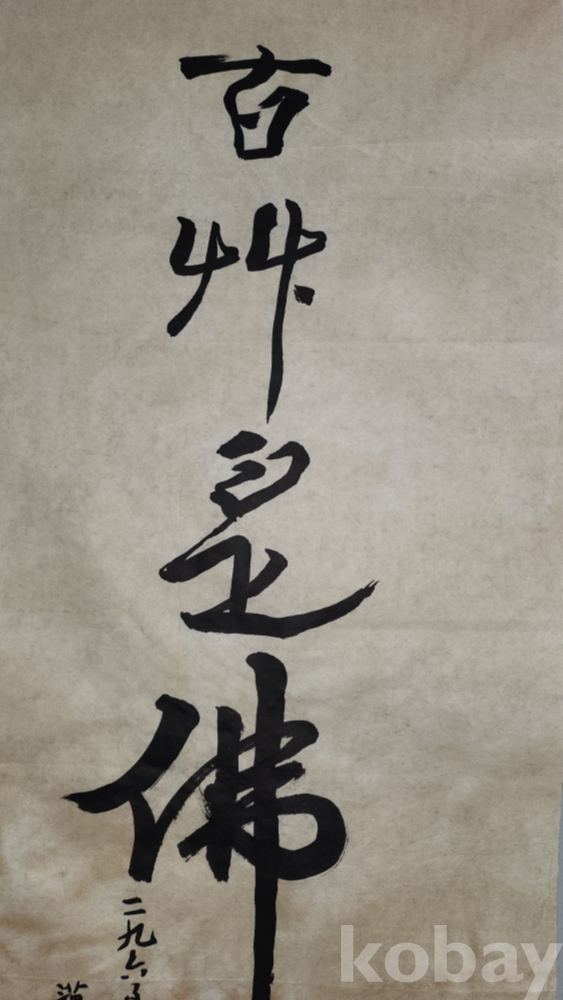 百艸是佛
二九六
kobay